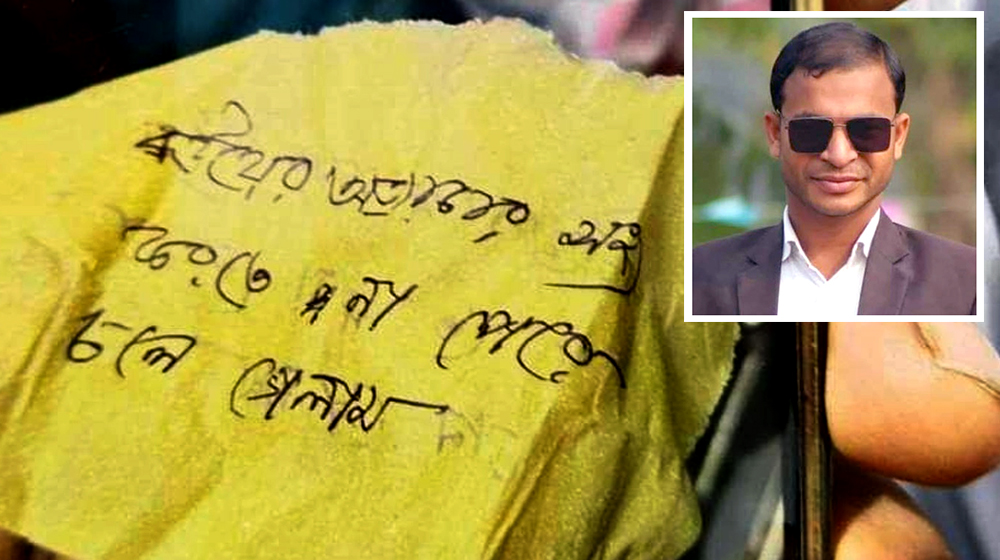 ভাইয়ের অত্যাচার সহ্য
করতে না পেরে
চলে গেলাম